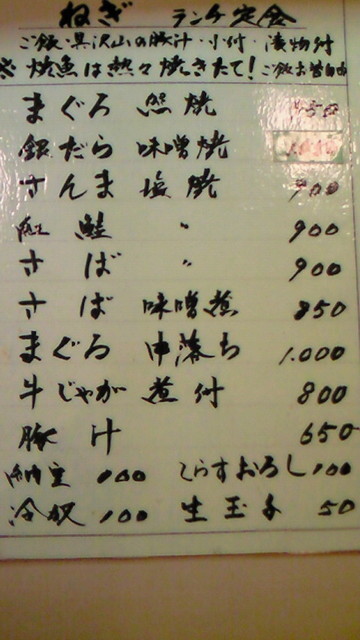 ねぎ ランチ定食
ご飯・具沢山の豚汁・小付・漬物付
焼魚は熱々焼きたて! ご飯お替自由
まぐろ 照焼
銀だら 味噌焼
さんま 塩焼 900
紅鮭 〃 900
さば 〃 900
さば 味噌煮 850
まぐろ 中落ち 1.000
牛じゃが 煮付 800
豚汁 650
納豆 100 しらすおろし 100
冷奴 100 生玉子 50